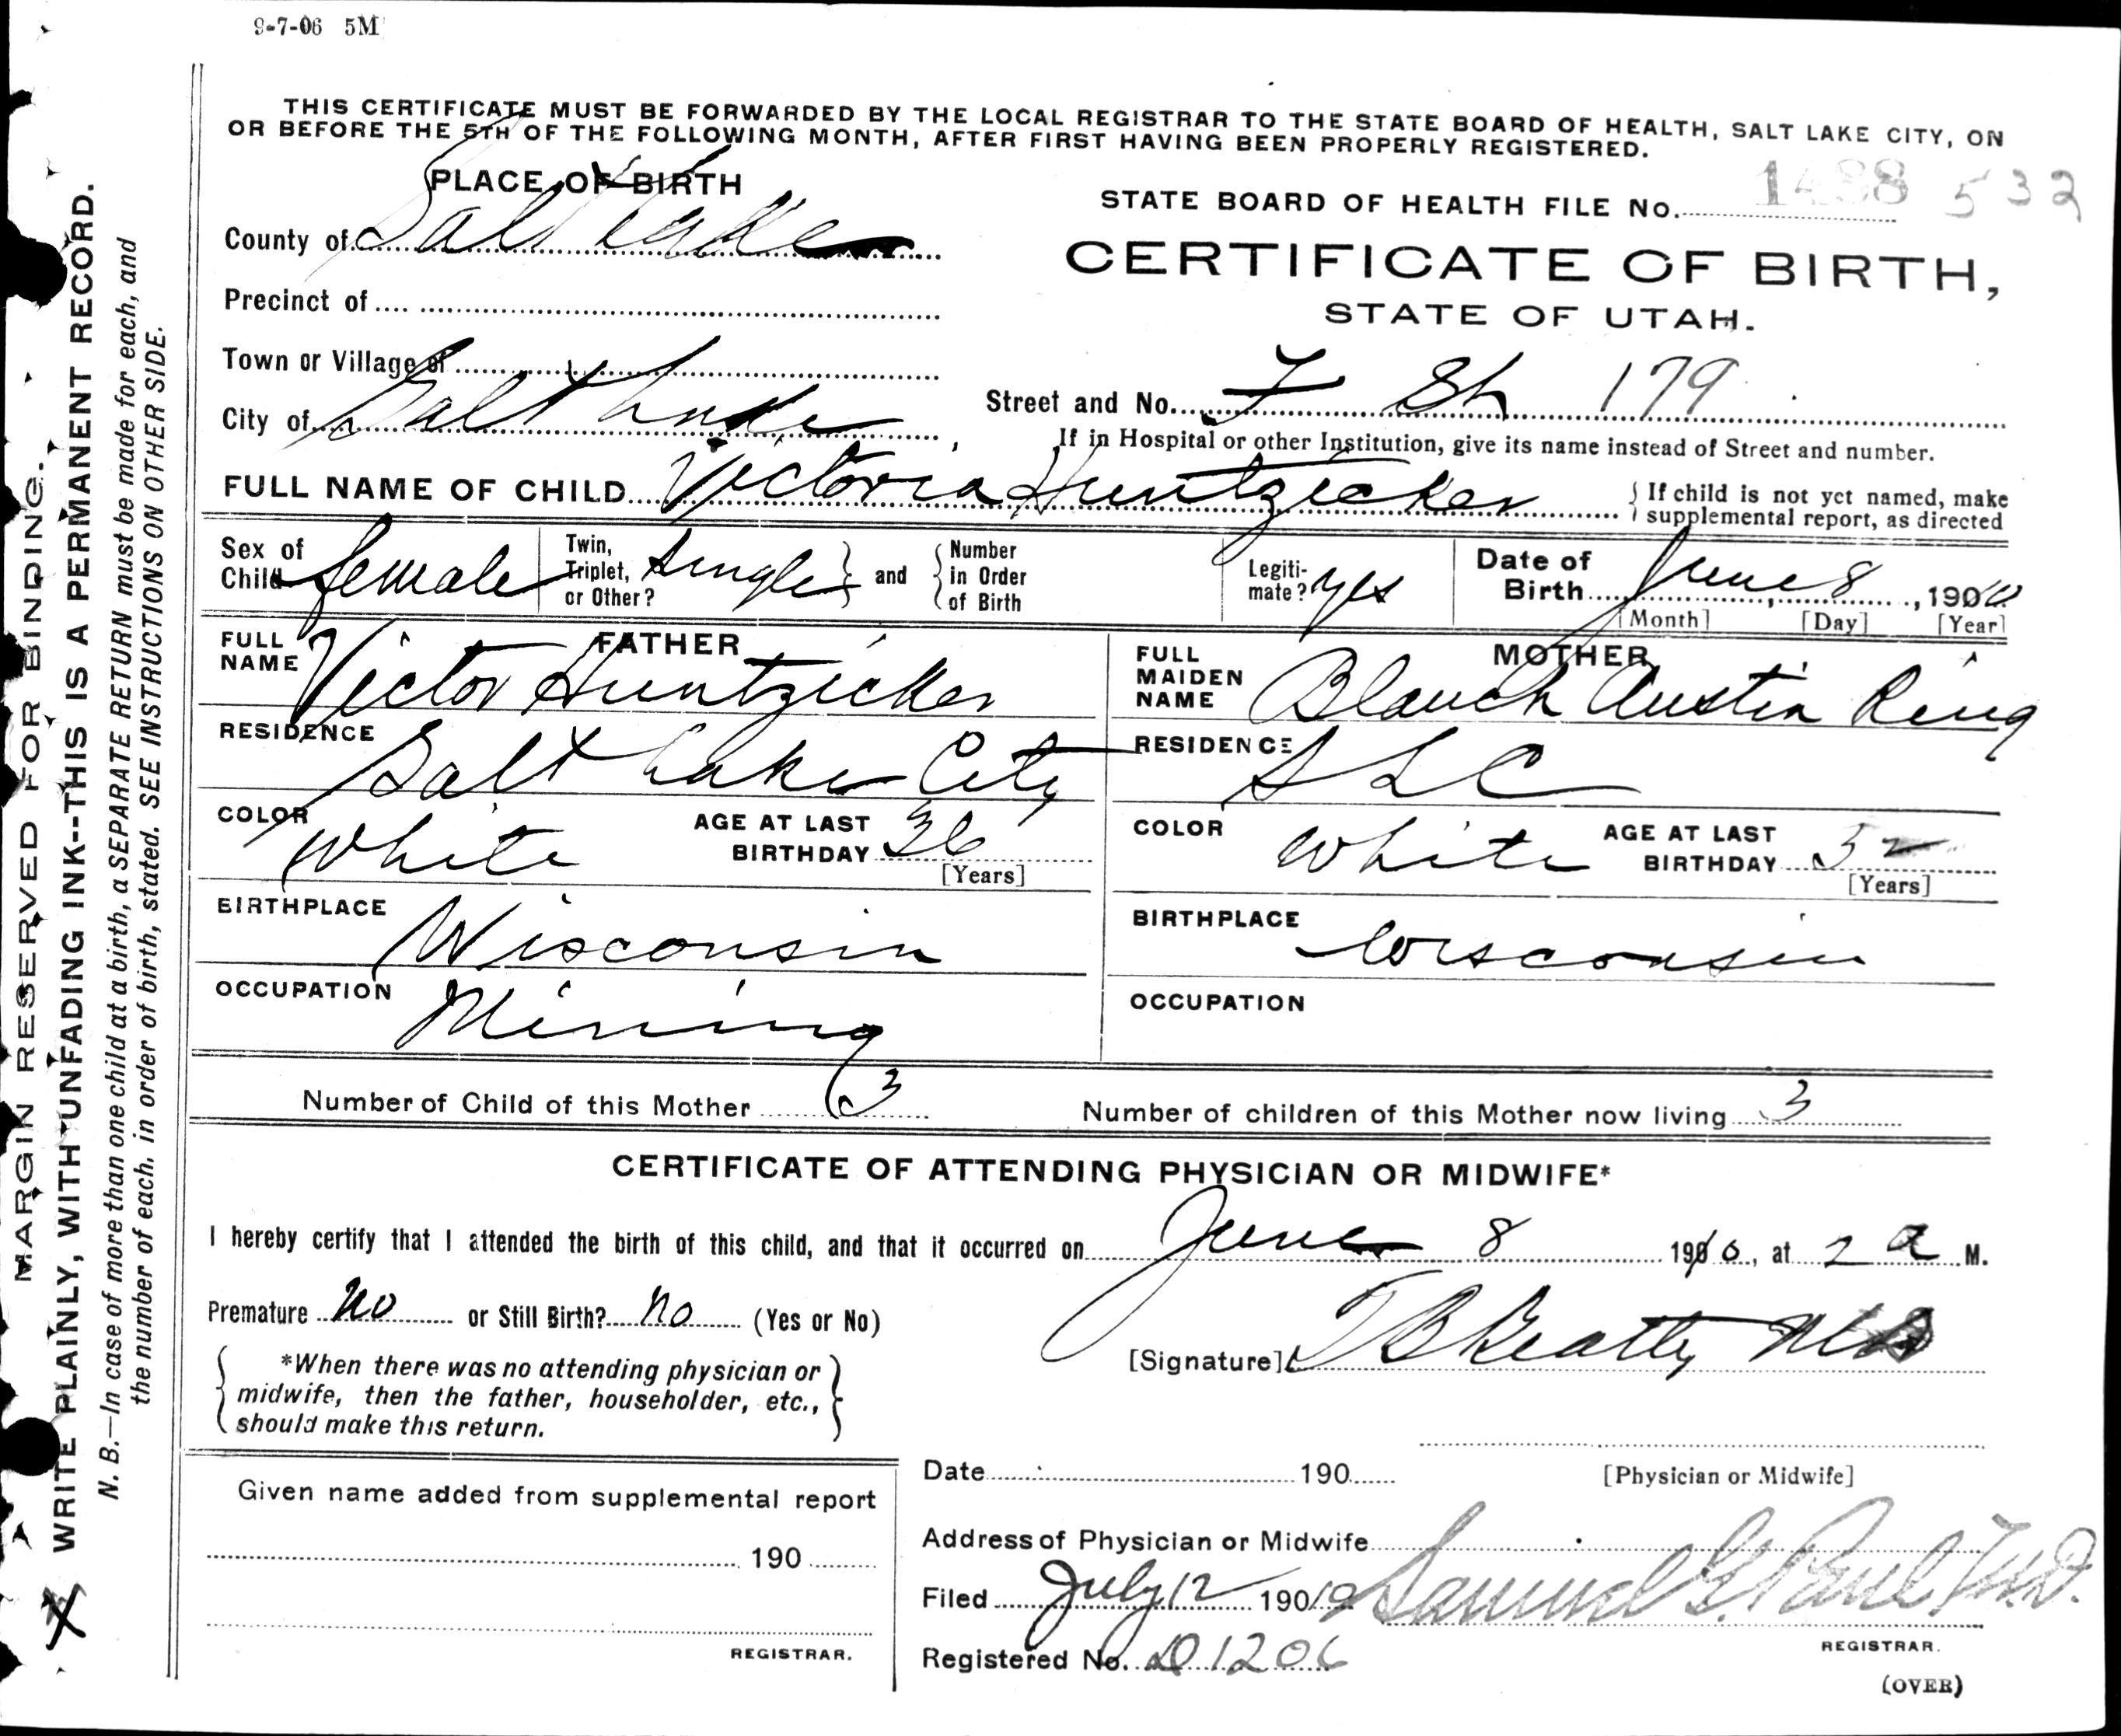 9-7-06 5M
THIS CERTIFICATE MUST BE FORWARDED BY THE LOCAL REGISTRAR TO THE STATE BOARD OF HEALTH, SALT LAKE CITY, ON
OR BEFORE THE 5TH OF THE FOLLOWING MONTH, AFTER FIRST HAVING BEEN PROPERLY REGISTERED.
PLACE OF BIRTH
County of Salt Lake
Precinct of
Town or Village of
City of Salt Lake
STATE BOARD OF HEALTH FILE No. 532
CERTIFICATE OF BIRTH,
STATE OF UTAH.
Street and No. F St 179
If in Hospital or other Institution, give its name instead of Street and number.
FULL NAME OF CHILD Victoria Huntzicker
{ If child is not yet named, make
supplemental report, as directed
Sex of Child female
Twin, Triplet, or Other? Single } and { Number in Order of Birth
Legiti-mate? yes
Date of Birth June 8, 190
[Month] [Day] [Year]
FATHER
FULL NAME Victor Huntzicker
RESIDENCE Salt Lake City
COLOR White AGE AT LAST BIRTHDAY 36
[Years]
BIRTHPLACE Wisconsin
OCCUPATION Mining
MOTHER
FULL MAIDEN NAME Blanch Austin Ring
RESIDENCE S L C
COLOR White AGE AT LAST BIRTHDAY
[Years]
BIRTHPLACE Wisconsin
OCCUPATION
Number of Child of this Mother 3
Number of children of this Mother now living 3
CERTIFICATE OF ATTENDING PHYSICIAN OR MIDWIFE*
I hereby certify that I attended the birth of this child, and that it occurred on June 8 190, at 2 a M.
Premature no or Still Birth? no (Yes or No)
[Signature] T B Beatty MD
{ *When there was no attending physician or
midwife, then the father, householder, etc.,
should make this return. }
Given name added from supplemental report
190
REGISTRAR.
Date 190
[Physician or Midwife]
Address of Physician or Midwife
Filed July 12 1910 Samuel G. Paul, M.D.
REGISTRAR.
Registered No. 1206
(OVER)
MARGIN RESERVED FOR BINDING.
WRITE PLAINLY, WITH UNFADING INK--THIS IS A PERMANENT RECORD.
N. B.—In case of more than one child at a birth, a SEPARATE RETURN must be made for each, and
the number of each, in order of birth, stated. SEE INSTRUCTIONS ON OTHER SIDE.
X